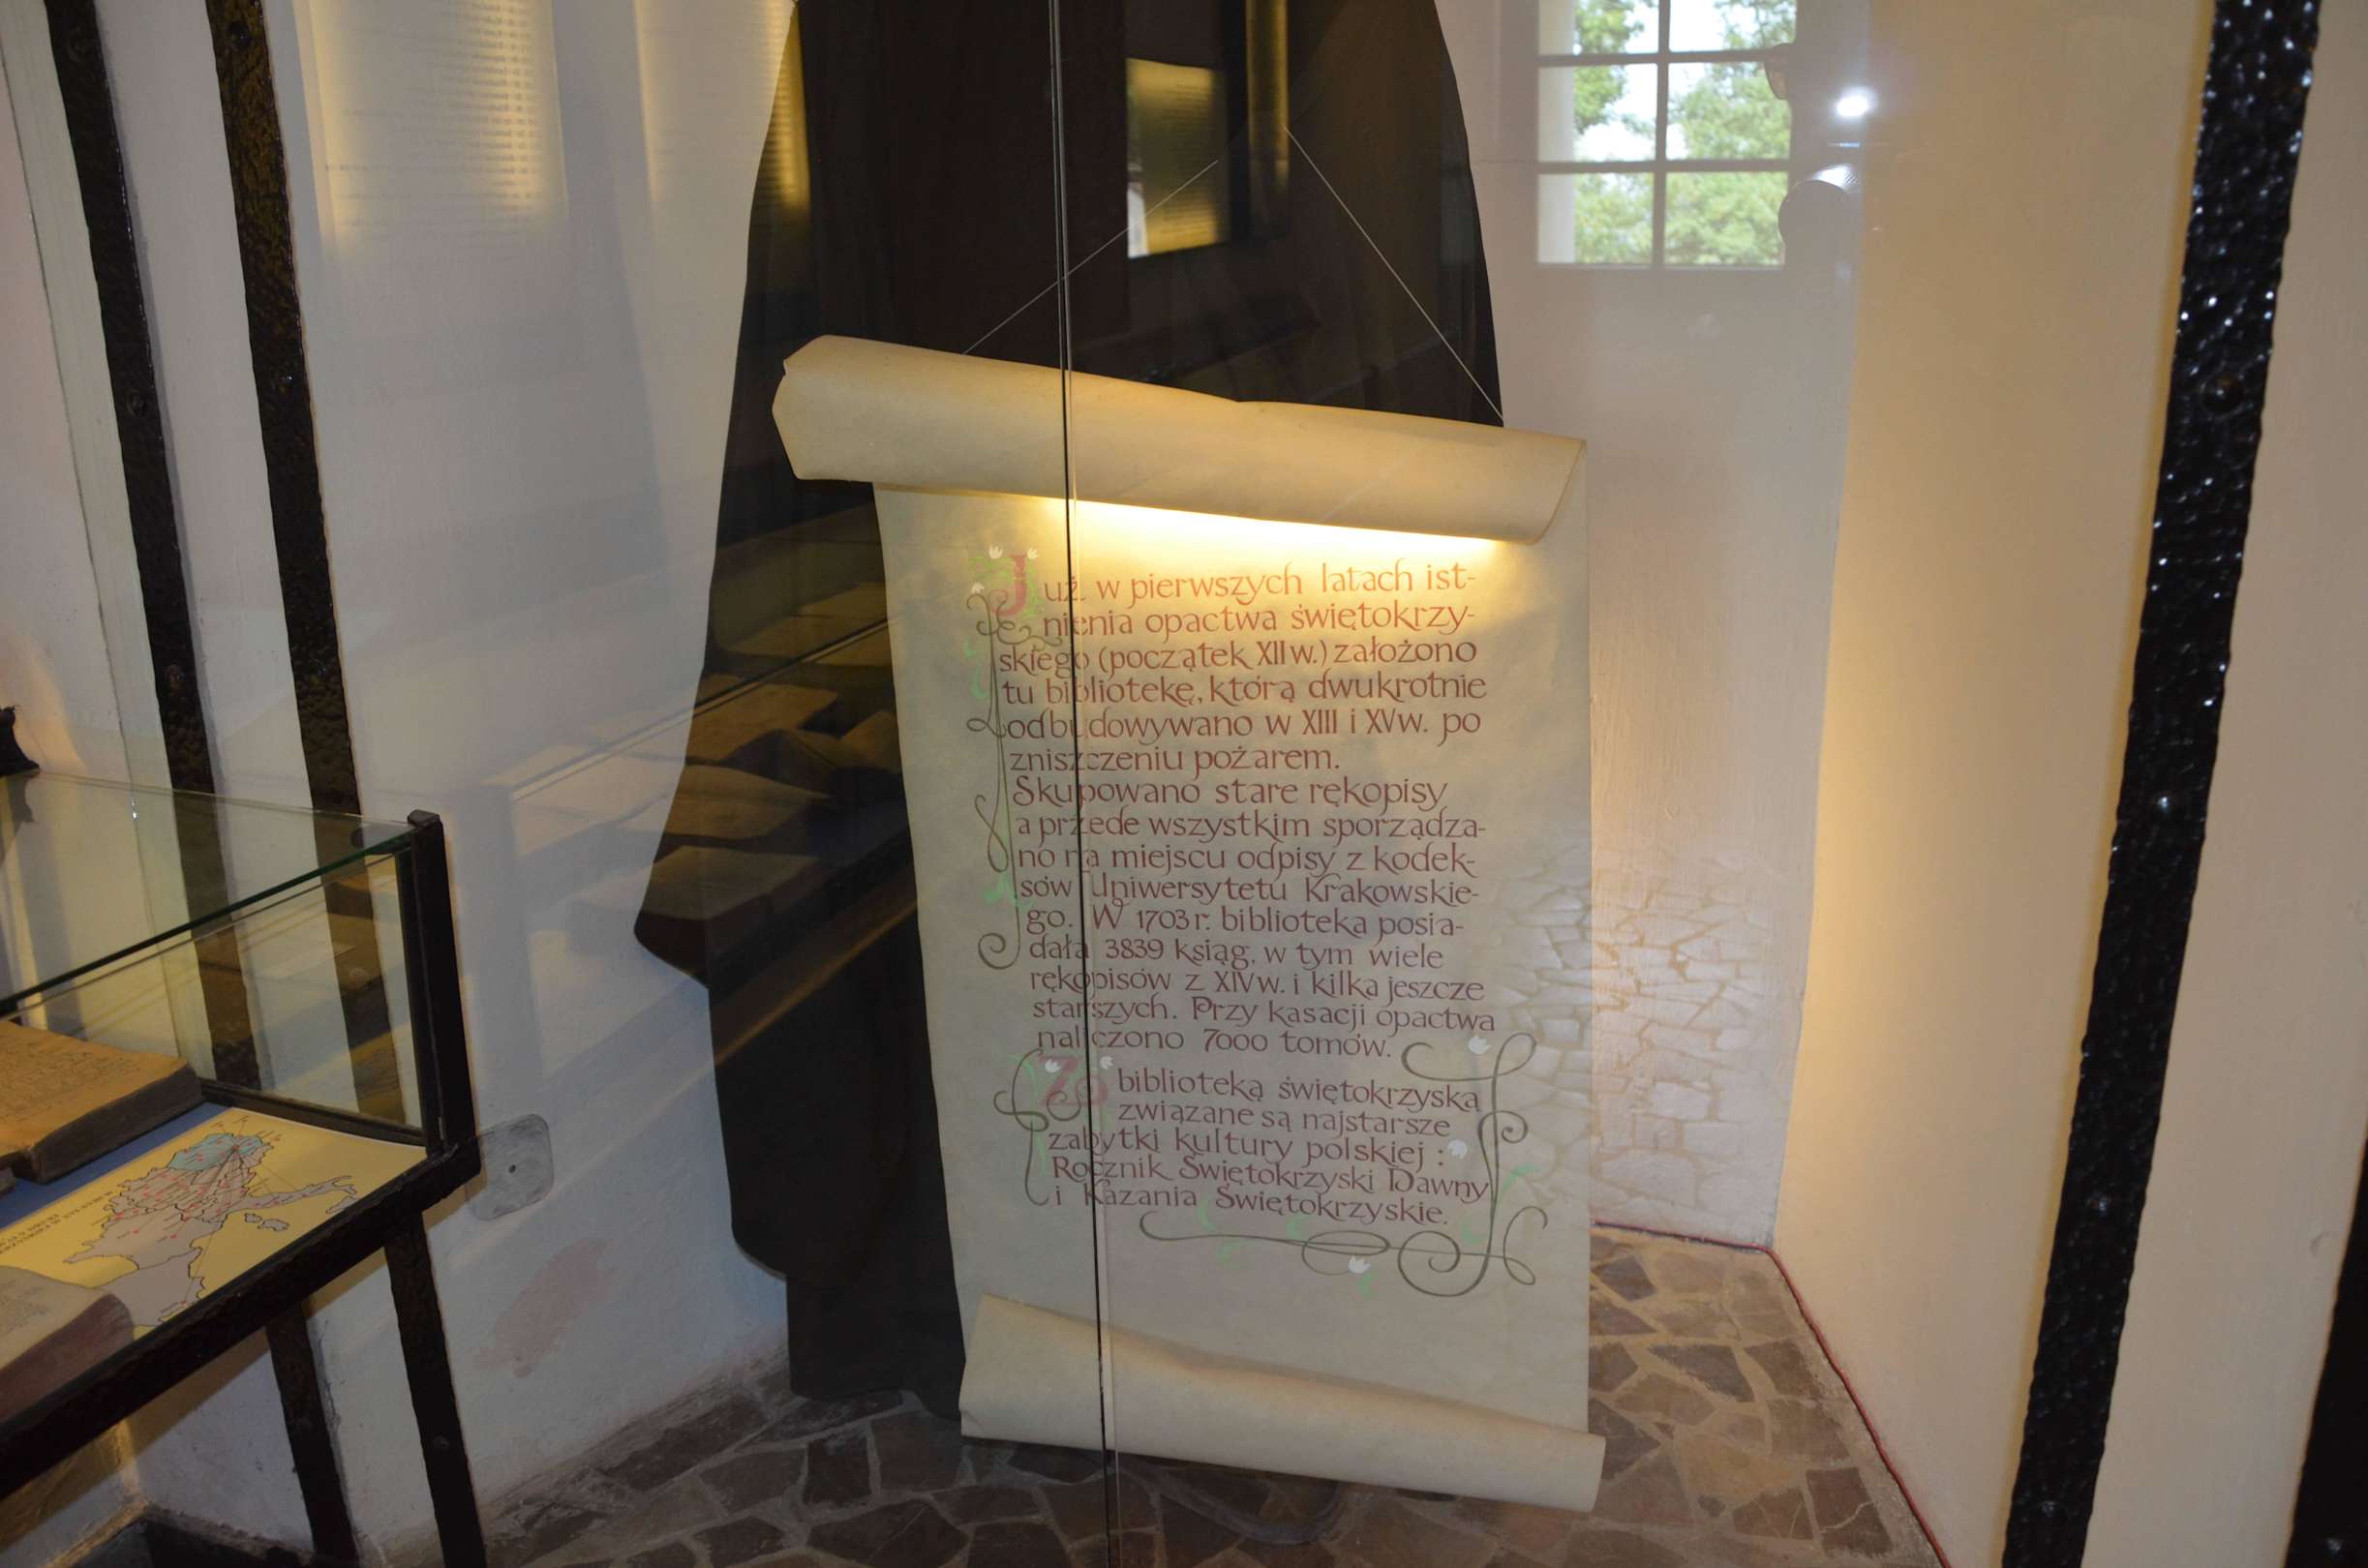 Już w pierwszych latach ist-
nienia opactwa świętokrzy-
skiego (początek XII w.) założono
tu bibliotekę, którą dwukrotnie
odbudowywano w XIII i XV w. po
zniszczeniu pożarem.
Skupowano stare rękopisy
a przede wszystkim sporządza-
no na miejscu odpisy z kodek-
sów Uniwersytetu Krakowskie-
go. W 1703 r. biblioteka posia-
dała 3839 ksiąg, w tym wiele
rękopisów z XIV w. i kilka jeszcze
starszych. Przy kasacji opactwa
naliczono 7000 tomów.
Z biblioteką świętokrzyską
związane są najstarsze
zabytki kultury polskiej :
Rocznik Świętokrzyski Dawny
i Kazania Świętokrzyskie.